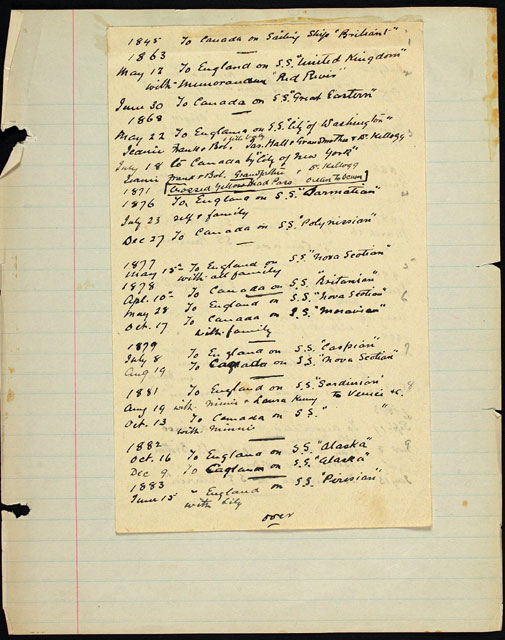 1845 To Canada on Sailing Ship "Briliant"
1863
May 17 To England on S.S. "United Kingdom"
with Memorandum "Red River"
June 30 To Canada on S.S. "Great Eastern"
1868
May 22 To England on S.S. "City of Washington"
Jeanie Frank & Bob. Jas. Hall & Grandmother & Dr. Kellogg
July 18 to Canada by "City of New York"
Frank & Bob. Grandfather & Dr. Kellogg
1871 Crossed Yellow Head Pass ocean to ocean
1876 To England on S.S. "Sarmatian"
July 23 self & family
Dec 27 To Canada on S.S. "Polynissian"
1877
May 15th To England on S.S. "Nova Scotian"
with all family
1878
Apl. 10th To Canada on S.S. "Sritanian"
May 28 To England on S.S. "Nova Scotian"
Oct. 17 To Canada on S.S. "Moravian"
with family
1879
July 8 To England on S.S. "Caspian"
Aug 19 To Canada on S.S. "Nova Scotian"
1881 To England on S.S. "Sardinian"
Aug 19 with Minnie & Laura to Venice &c.
Oct. 13 To Canada on S.S. " "
with Minnie
1882
Oct. 16 To England on S.S. "Alaska"
Dec 9. To on S.S. "Alaska"
1883
June 15 " England on S.S. "Pirisian"
with Lily
over